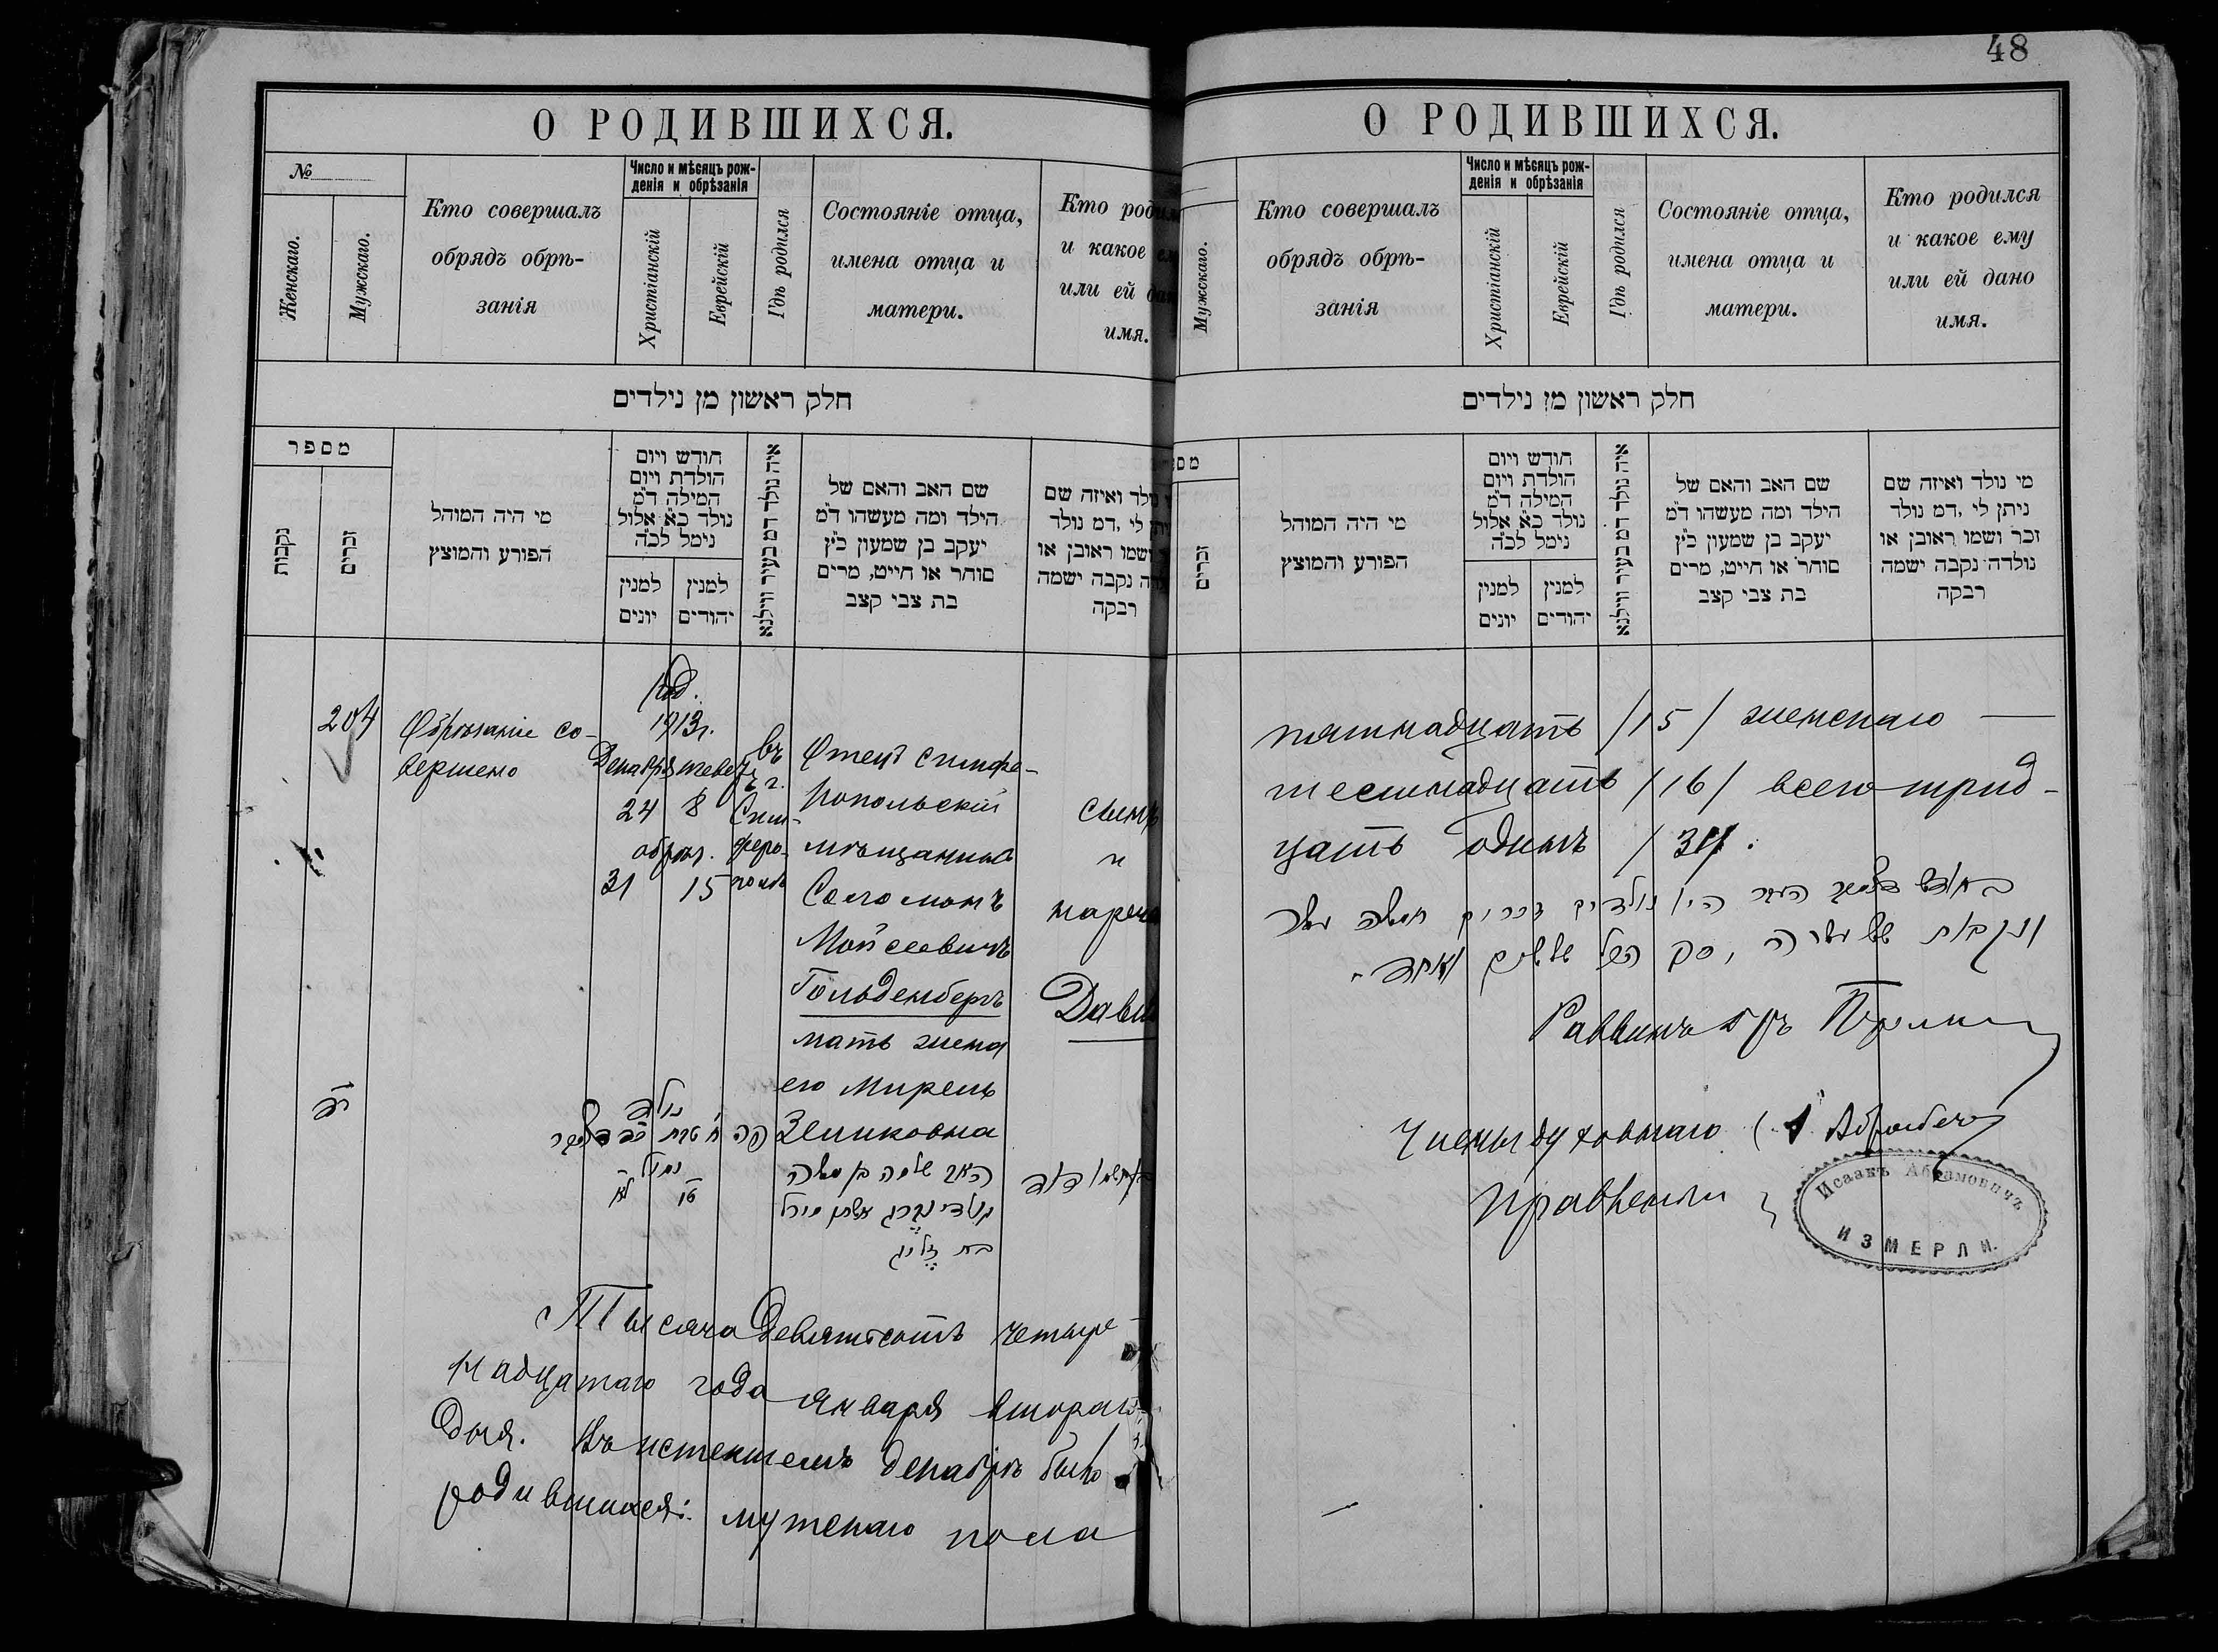 48
О РОДИВШИХСЯ.
№
Женскаго.
Мужскаго.
Кто совершалъ
обрядъ обрѣ-
занія
Число и мѣсяцъ рож-
денія и обрѣзанія
Христіанскій
Еврейскій
Гдѣ родился
Состояніе отца,
имена отца и
матери.
Кто роди
и какое
или ей
имя.
חלק ראשון מן נילדים
מספר
נקבות
זכרים
מי היה המוהל
הפורע והמוצץ
חודש ויום
הולדת ויום
המילה ד״מ
נולד כ״א אלול
נימל לכ״ה
למנין יונים
למנין יהודים
איה נולד דמ בעיר ווילנא
שם האב והאם של
הילד ומה מעשהו ד״מ
יעקב בן שמעון כ״ץ
סוחר או חייט, מרים
בת צבי קצב
נולד ואיזה שם
לי ,דמ נולד
ושמו ראובן או
נקבה ישמה
רבקה
204
Обрѣзаніе со-
вершено
Род.
1913г.
Декабря
24 8
обрѣз.
31 15
въ
г.
Сим-
феро-
Отецъ симфе-
ропольскій
мѣщанинъ
Соломонъ
Мойсеевичъ
Гольденбергъ
мать жена
его Мирель
Зеликовна
сынъ
и
нарече
Дави
נולד
נמול
טו לא
האב שלמה בן משה
גולדינברג אשתו מירל
בת זליג
Тысяча девятьсотъ четыре-
надцатаго года января второго
дня. Въ истекшемъ декабрѣ было
родившихся: мужскаго пола
О РОДИВШИХСЯ.
Мужскаго.
Кто совершалъ
обрядъ обрѣ-
занія
Число и мѣсяцъ рож-
денія и обрѣзанія
Христіанскій
Еврейскій
Гдѣ родился
Состояніе отца,
имена отца и
матери.
Кто родился
и какое ему
или ей дано
имя.
חלק ראשון מן נילדים
זכרים
מי היה המוהל
הפורע והמוצץ
חודש ויום
הולדת ויום
המילה ד״מ
נולד כ״א אלול
נימל לכ״ה
למנין יונים
למנין יהודים
איה נולד דמ בעיר ווילנא
שם האב והאם של
הילד ומה מעשהו ד״מ
יעקב בן שמעון כ״ץ
סוחר או חייט, מרים
בת צבי קצב
מי נולד ואיזה שם
ניתן לי ,דמ נולד
זכר ושמו ראובן או
נולדה נקבה ישמה
רבקה
пятнадцать /15/ женскаго —
шестнадцать /16/ всего трид-
цать одинъ /31/.
בחודש דצמבר העבר היו נולדים זכרים חמשה עשר
ונקבות שש עשרה, סך הכל שלשים ואחד.
Раввинъ
Члены духовнаго
правленія
Исаакъ Абрамовичъ
ИЗМЕРЛИ.